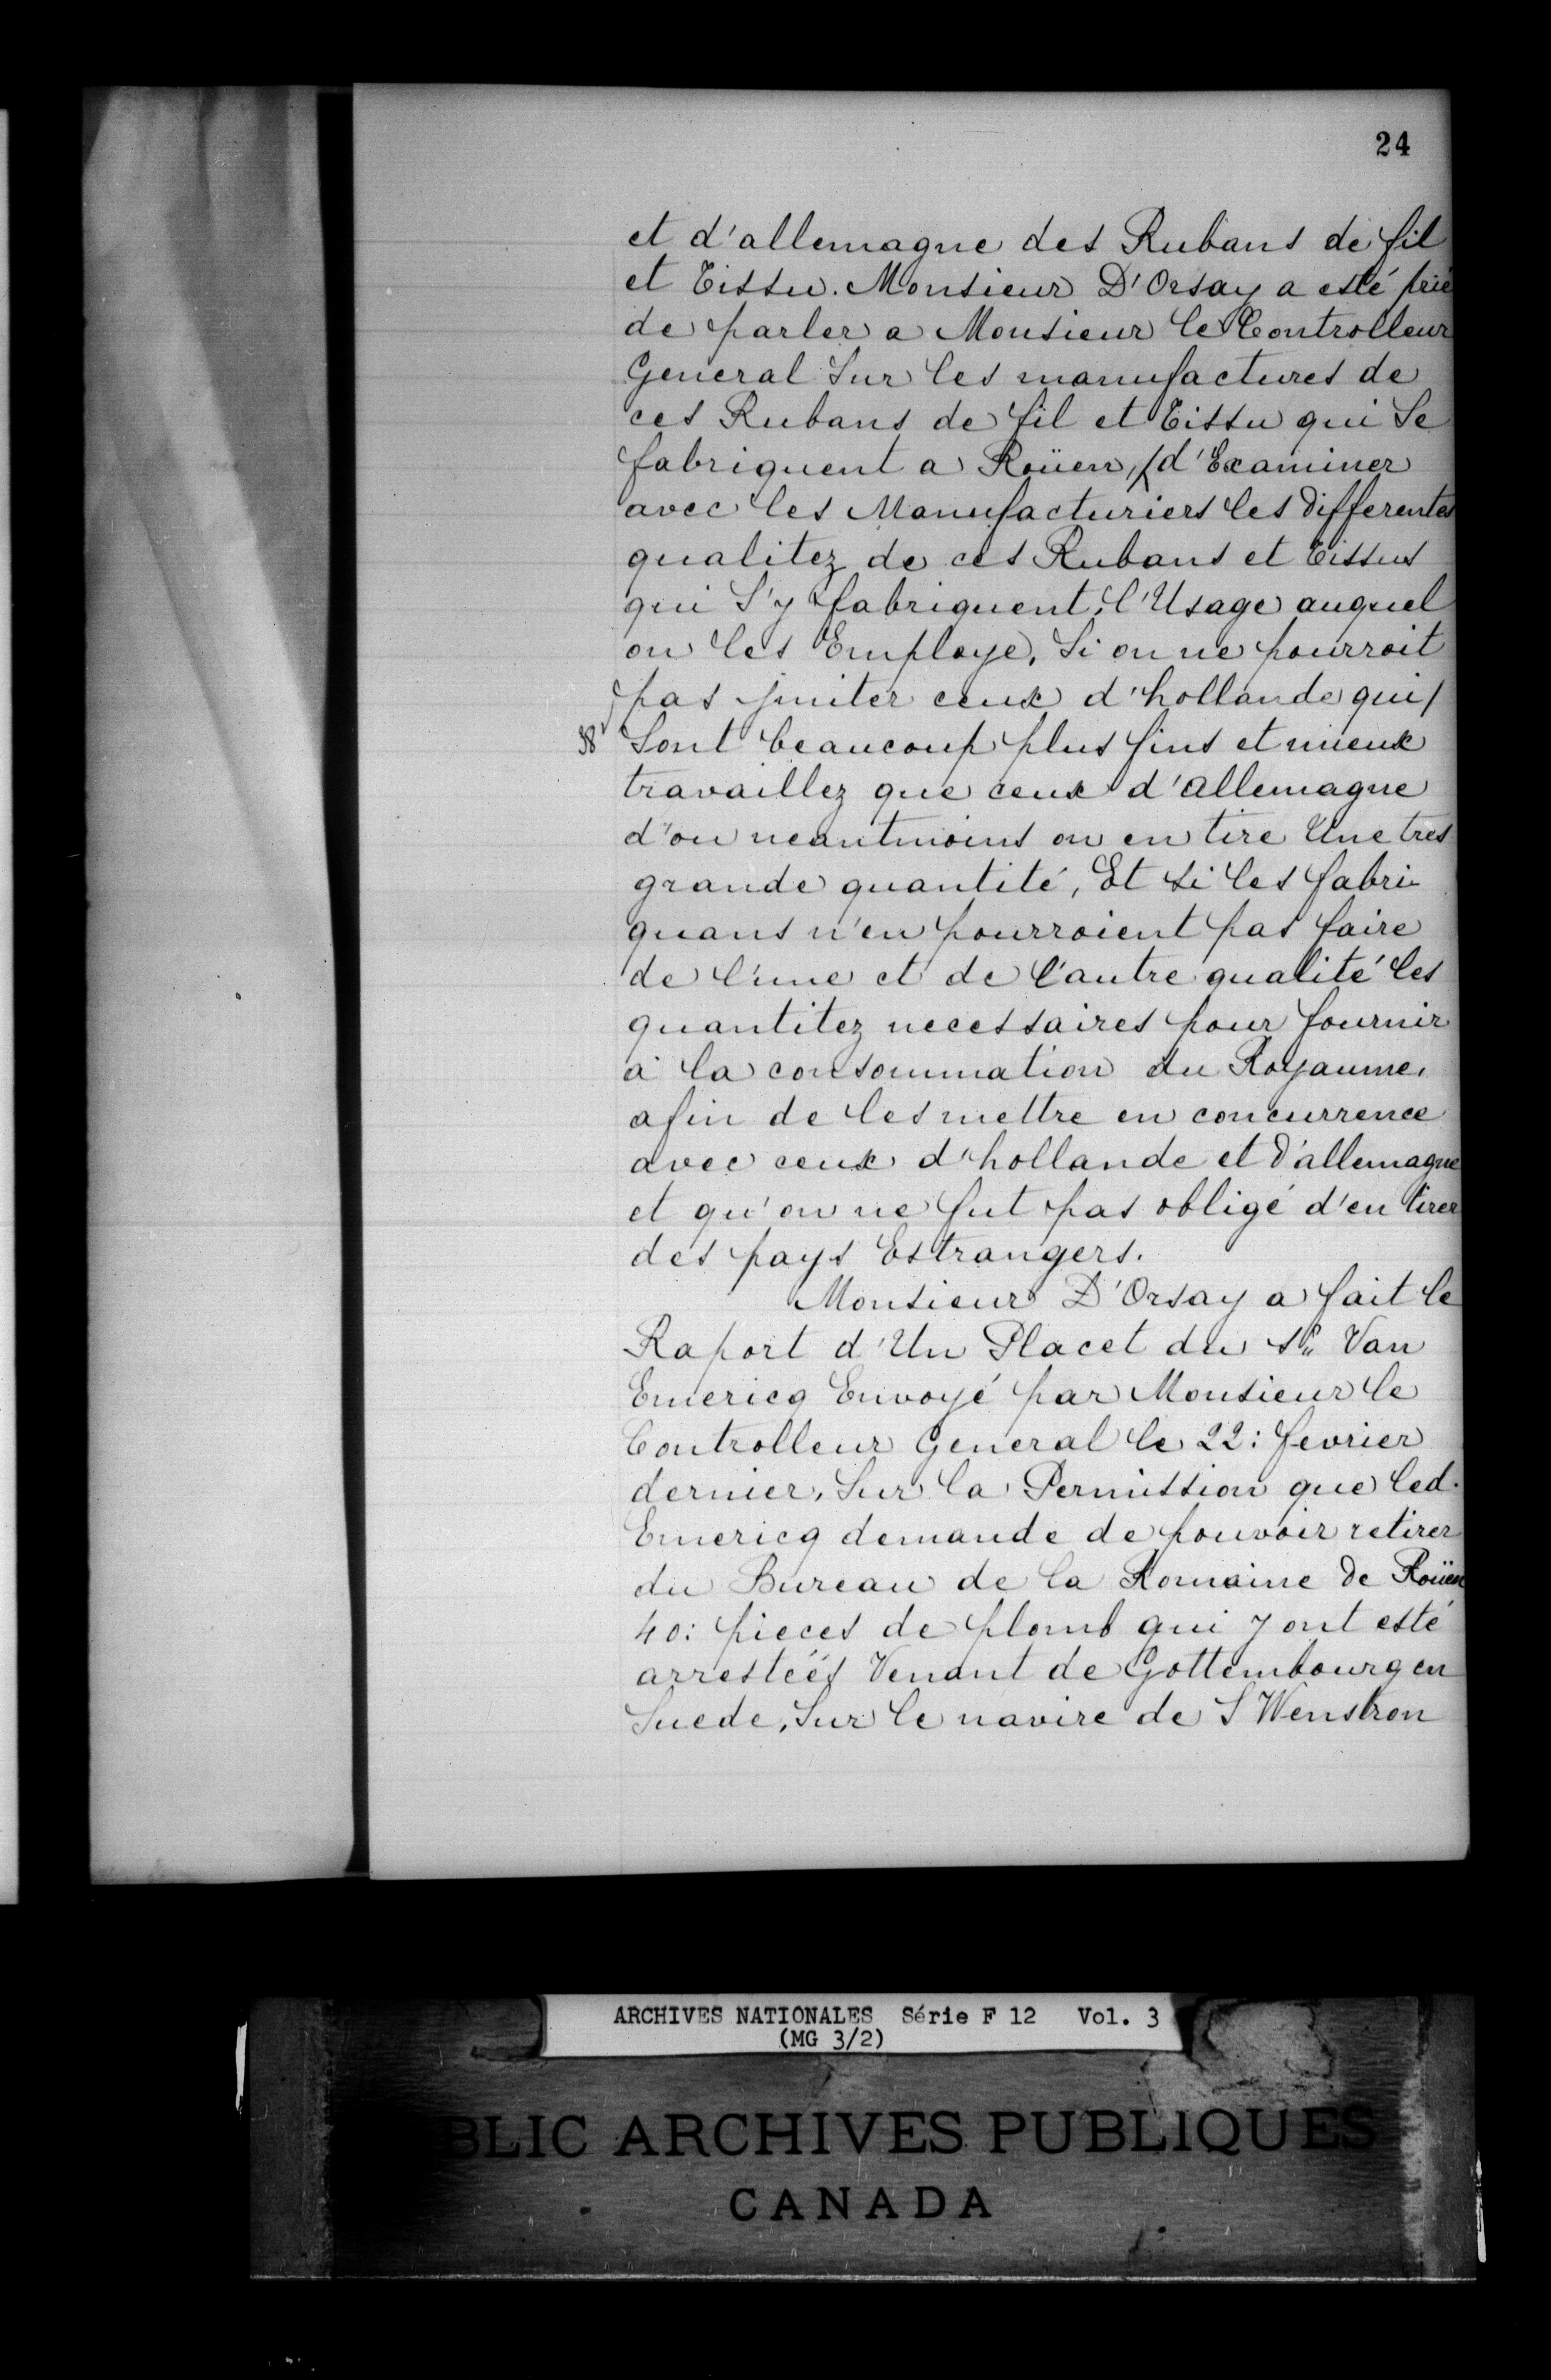 24
et d'allemagne des Rubans de fil
et Tissu. Monsieur D'Orsay a esté prié
de parler a Monsieur le Controlleur
General Sur les manufactures de
ces Rubans de fil et Tissu qui Se
fabriquent a Roüen, d'Examiner
avec les Manufacturiers les differentes
qualitez de ces Rubans et Tissus
qui S'y fabriquent, l'Usage auquel
on les Employe, Si on ne pourroit
pas jmiter ceux d'hollande qui/
Sont beaucoup plus fins et mieux
travaillez que ceux d'allemagne
d'ou neantmoins on en tire Une tres
grande quantité, Et si les fabri-
quans n'en pourroient pas faire
de l'une et de l'autre qualité les
quantitez necessaires pour fournir
à la consommation du Royaume,
afin de les mettre en concurrence
avec ceux d'hollande et d'allemagne
et qu'on ne fut pas obligé d'en tirer
des pays Estrangers.
Monsieur D'Orsay a fait le
Raport d'Un Placet du Sr. Van
Emericq Envoyé par Monsieur le
Controlleur General le 22: fevrier
dernier, Sur la Permission que led.
Emericq demande de pouvoir retirer
du Bureau de la Romaine de Roüen
40: pieces de plomb qui y ont esté
arrestéés Venant de Gottembourg en
Suede, Sur le navire de S Wenstron
ARCHIVES NATIONALES Série F 12 Vol. 3
(MG 3/2)
BLIC ARCHIVES PUBLIQUES
CANADA